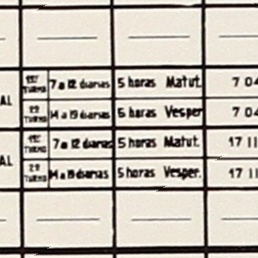 1º TURNO 7 a 12 diarias 5 horas Matut. 7 04
AL
2º TURNO 14 a 19 diarias 5 horas Vesper 7 04
1º TURNO 7 a 12 diarias 5 horas Matut. 17 11
AL
2º TURNO 14 a 19 diarias 5 horas Vesper. 17 11